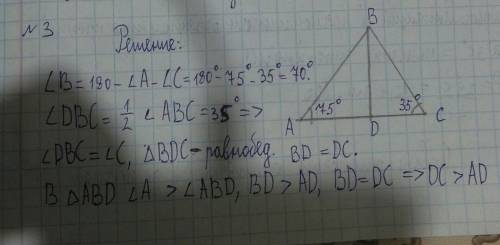 № 3
Решение:
∠B = 180 - ∠A - ∠C = 180° - 75° - 35° = 70°.
∠DBC = 1/2 ∠ABC = 35° =>
∠DBC = ∠C, △BDC - равнобед. BD = DC.
В △ABD ∠A > ∠ABD, BD > AD, BD = DC => DC > AD
B
75°
35°
A
D
C